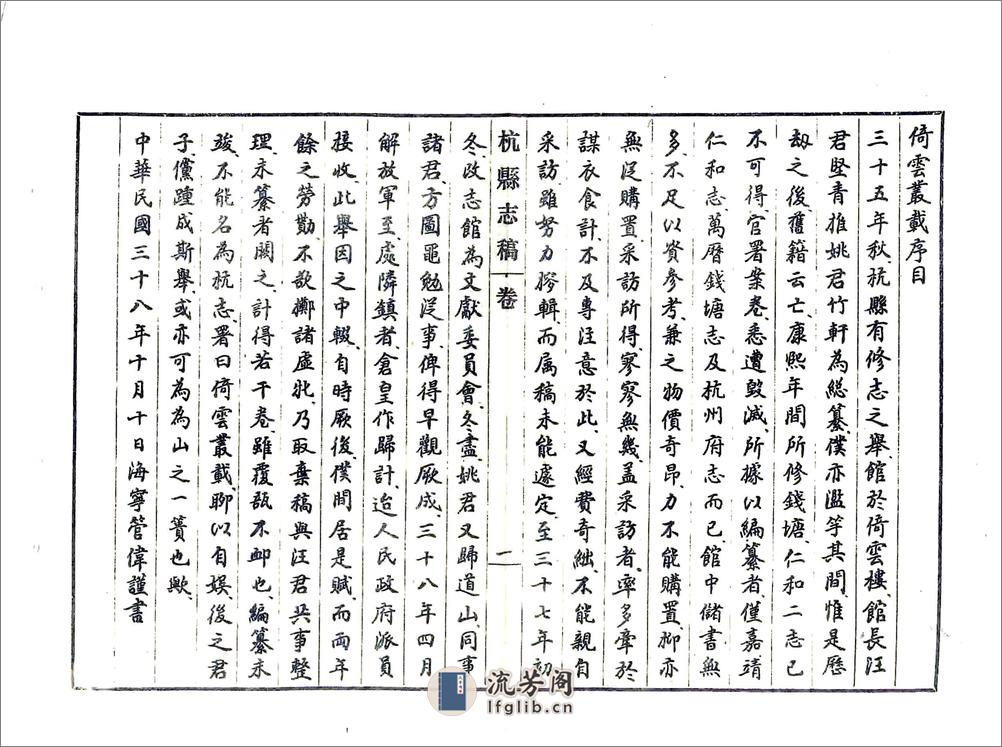 倚雲叢載序目
三十五年秋杭縣有修志之舉館於倚雲樓、館長汪
君堅青推姚君竹軒為總纂僕亦濫竽其間、惟是歷
劫之後舊籍云亡、康熙年間所修錢塘、仁和二志已
不可得、官署案卷、悉遭毀滅、所據以編纂者、僅嘉靖
仁和志萬曆錢塘志及杭州府志而已、館中儲書無
多、不足以資參考、兼之物價奇昂、力不能購置、抑亦
無從購置、采訪所得、寥寥無幾、盖采訪者、率多牽於
謀衣食計、不及專注意於此、又經費奇絀、不能親自
采訪、雖努力搿輯、而屬稿未能遽定、至三十七年初
杭縣志稿 卷 一
冬、改志館為文獻委員會、冬盡、姚君又歸道山、同事
諸君、方圖黽勉從事、俾得早觀厥成、三十八年四月
解放軍至、處隣鎮者、倉皇作歸計、迨人民政府派員
接收、此舉因之中輟、自時厥後、僕閒居是賦、而兩年
餘之勞勩、不欲擲諸虛牝、乃取棄稿與汪君共事整
理、未纂者闕之、計得若干卷、雖覆瓿不卹也、編纂未
竣、不能名為杭志、署曰倚雲叢載、聊以自娛、後之君
子、儻踵成斯舉、或亦可為為山之一簣也歟、
中華民國三十八年十月十日海寧管偉謹書
流芳阁
lfglib.cn